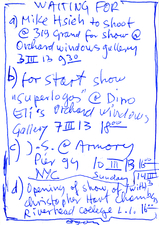 WAITING FOR
a) Mike Hsieh to shoot
@ 319 Grand for show @
Orchard windows gallery
3 III 13 9,30
b) for start show
"superlogos" @ Dino
Eli's Orchard Windows
Gallery 7 III 13 18°°
c) J.-S. @ Armory
Pier 94 10 III 13 16°°
NYC Sunday 14 III
d) Opening of show, of, with 3
christopher Hart Chambers
Riverhead college L.I. 16°°